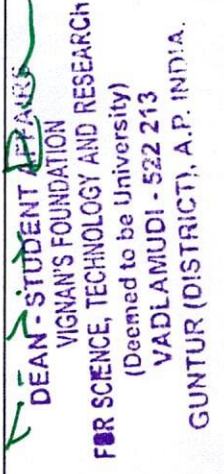 DEAN - STUDENT AFFAIRS
VIGNAN'S FOUNDATION
FOR SCIENCE, TECHNOLOGY AND RESEARCH
(Deemed to be University)
VADLAMUDI - 522 213
GUNTUR (DISTRICT), A.P. INDIA.